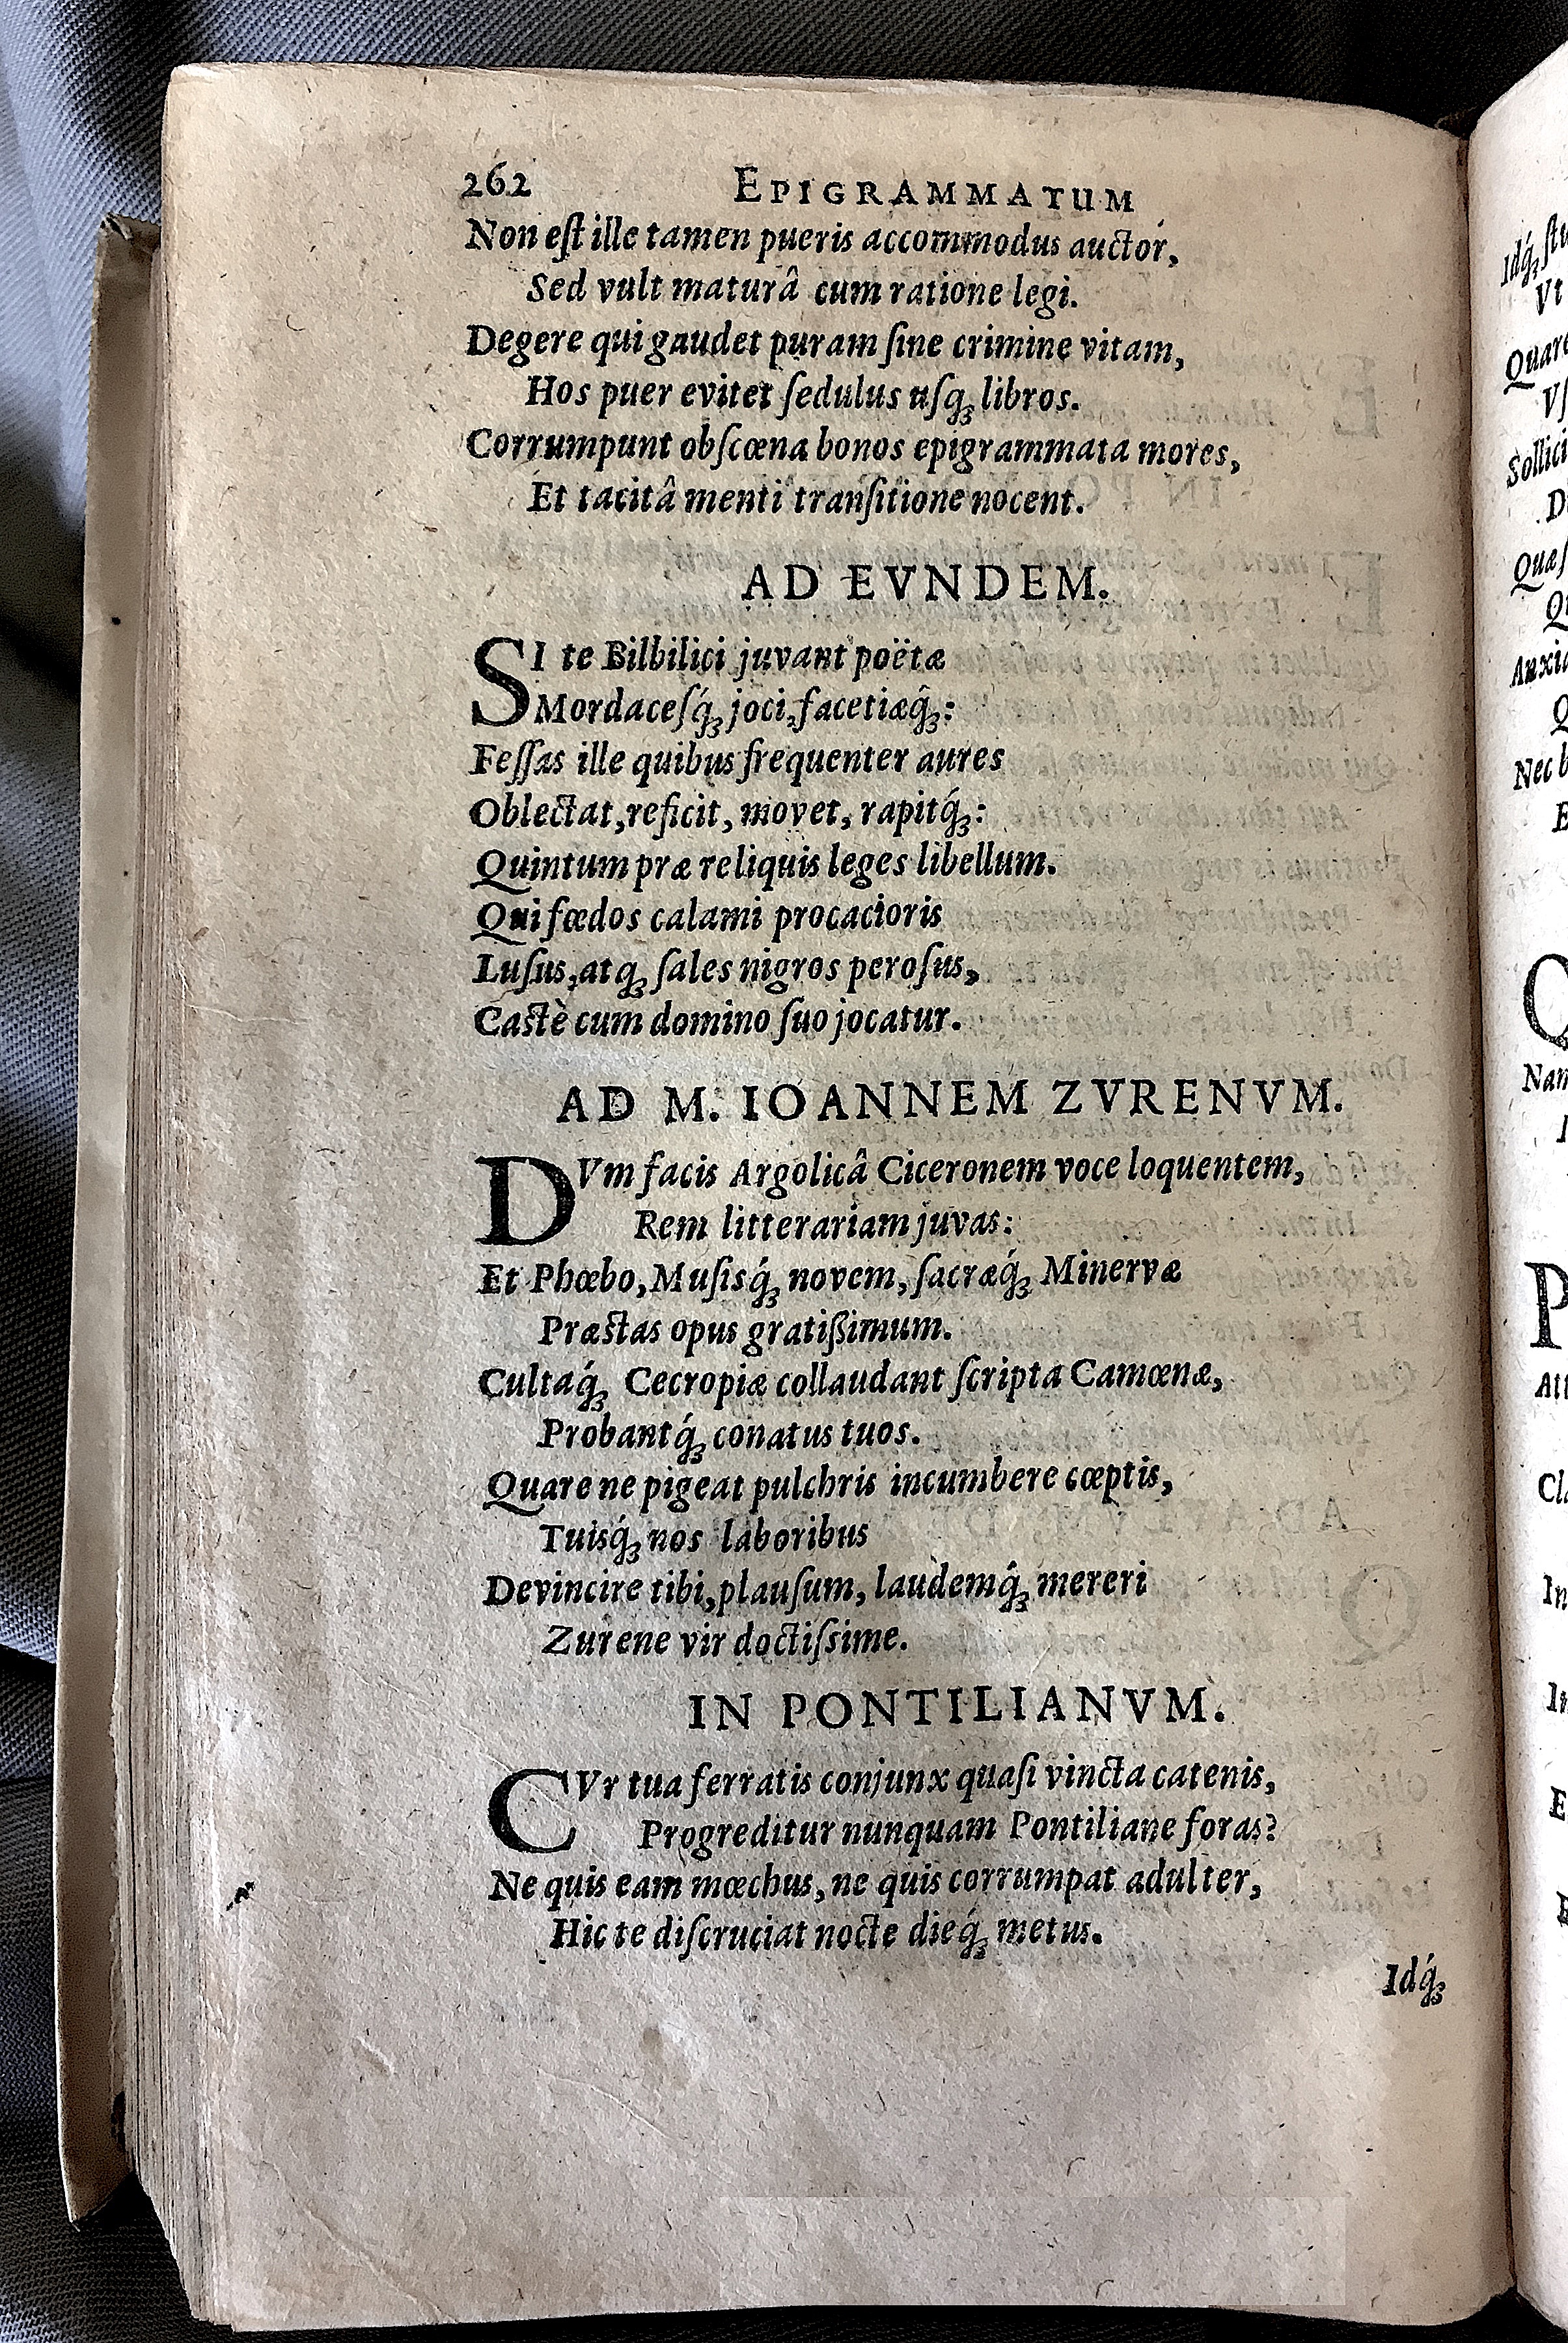 262 EPIGRAMMATUM
Non eſt ille tamen pueris accommodus auctor,
Sed vult maturâ cum ratione legi.
Degere qui gaudet puram ſine crimine vitam,
Hos puer evitet ſedulus uſq́ꝫ libros.
Corrumpunt obſcœna bonos epigrammata mores,
Et tacitâ menti tranſitione nocent.
AD EVNDEM.
SI te Bilbilici juvant poëtæ
Mordaceſq́ꝫ joci, facetiæq́ꝫ:
Feſſas ille quibus frequenter aures
Oblectat, reficit, movet, rapitq́ꝫ:
Quintum præ reliquis leges libellum.
Qui fœdos calami procacioris
Luſus, atqꝫ ſales nigros peroſus,
Caſtè cum domino ſuo jocatur.
AD M. IOANNEM ZVRENVM.
DVm facis Argolicâ Ciceronem voce loquentem,
Rem litterariam juvas:
Et Phœbo, Muſisq́ꝫ novem, ſacræq́ꝫ Minervæ
Præſtas opus gratißimum.
Cultaq́ꝫ Cecropiæ collaudant ſcripta Camœnæ,
Probantq́ꝫ conatus tuos.
Quare ne pigeat pulchris incumbere cœptis,
Tuisq́ꝫ nos laboribus
Devincire tibi, plauſum, laudemq́ꝫ mereri
Zurene vir doctiſsime.
IN PONTILIANVM.
CVr tua ferratis conjunx quaſi vincta catenis,
Progreditur nunquam Pontiliane foras?
Ne quis eam mœchus, ne quis corrumpat adulter,
Hic te diſcruciat nocte dieq́ꝫ metus.
Idq́ꝫ
Idq́ꝫ
Vt
Quare
Sollici
Nec